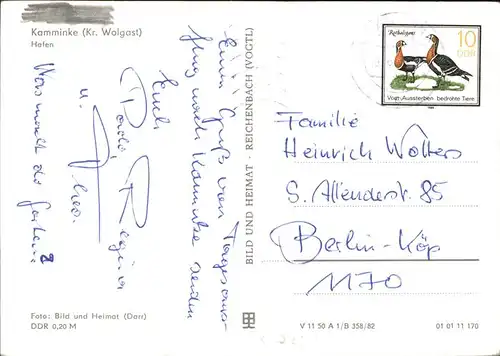 Kamminke (Kr. Wolgast)
Hafen
Einen Gruß vom Tagesaus-
flug nach Kamminke senden
Euch
Regina
u.
Was macht der Garten?
Foto: Bild und Heimat (Darr)
DDR 0,20 M
BILD UND HEIMAT · REICHENBACH (VOGTL)
Rothalsgans
10
DDR
Vom Aussterben bedrohte Tiere
Familie
Heinrich Wolters
S. Allendestr. 85
Berlin-Köp
1170
V 11 50 A 1/B 358/82
01 01 11 170